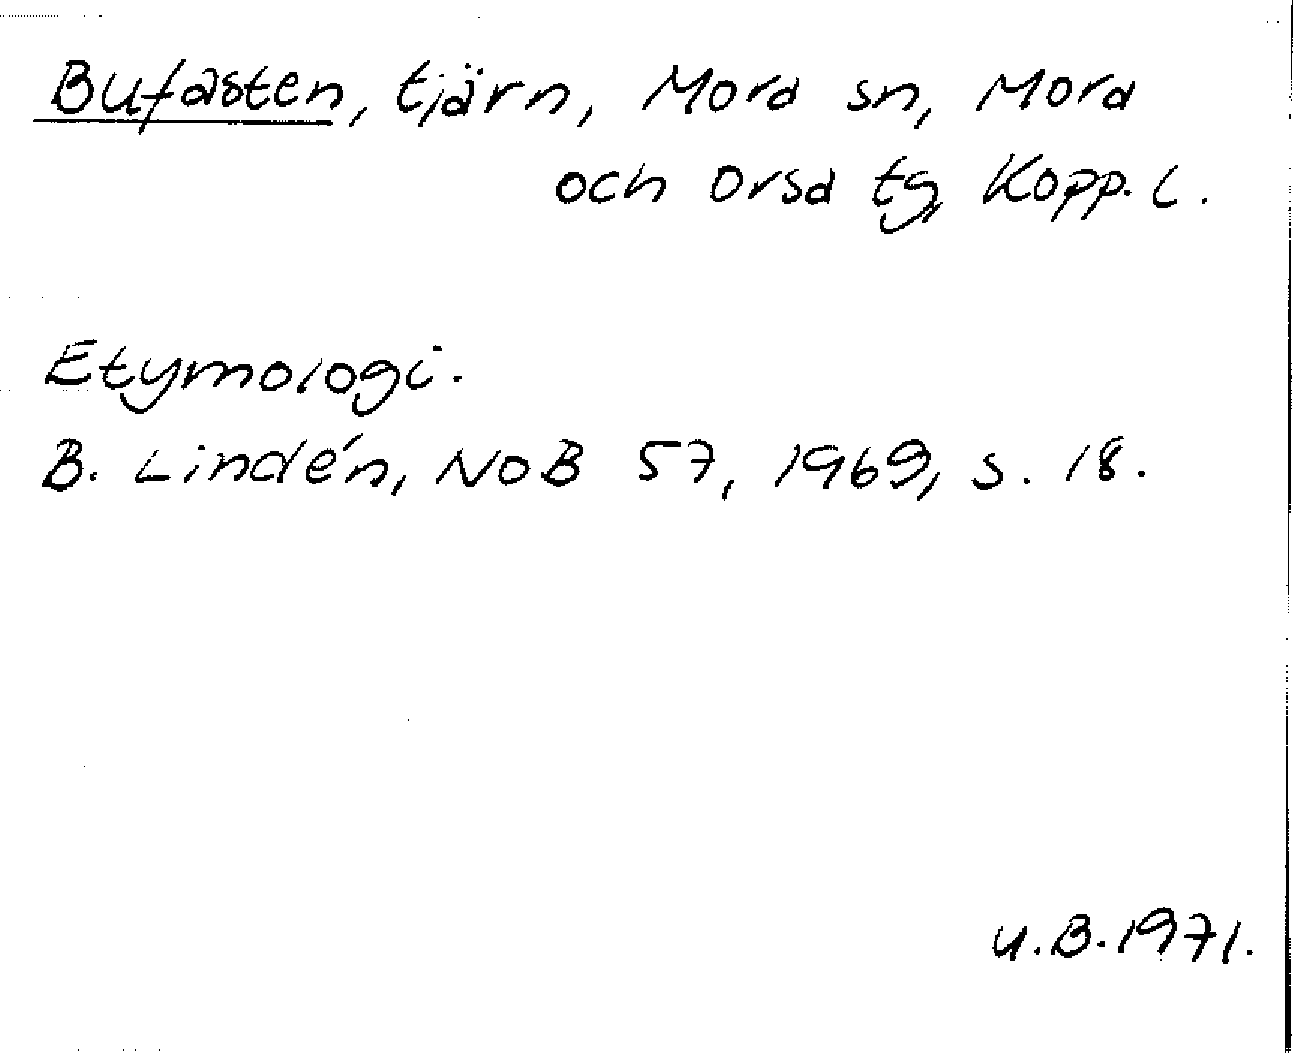 Bufasten, tjärn, Mora sn, Mora
och Orsa tg, Kopp. L.
Etymologi.
B. Lindén, NoB 57, 1969, s. 18.
U.B. 1971.